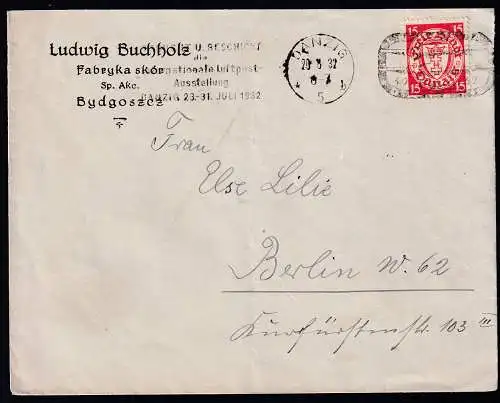 Ludwig Buchholz
Fabryka skór
Sp. Akc.
Bydgoszcz
T U. BESCHICKT
die
nationale Luftpost-
Ausstellung
DANZIG 23.-31. JULI 1932
DANZIG
5
15 15
15 15
Frau
Else Lilie
Berlin W. 62
Kurfürstenstr. 103 III